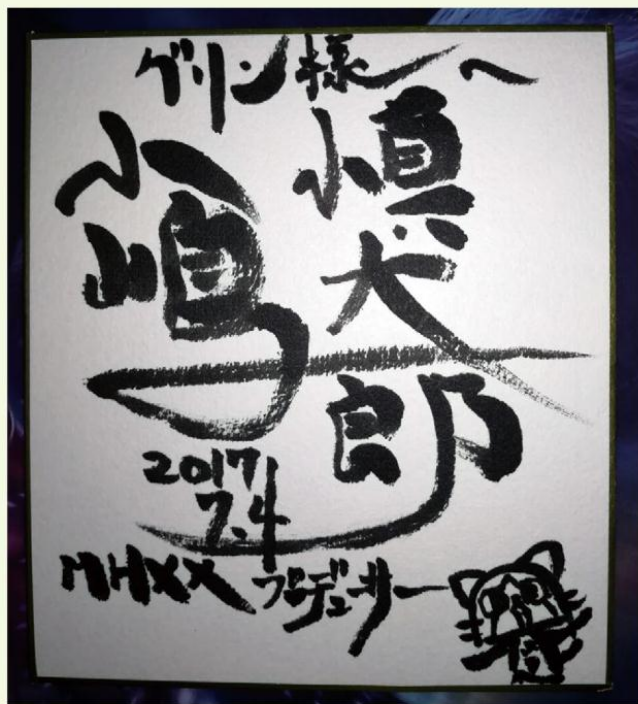 グリン様へ
小嶋
慎太郎
2017
7.4
MHXX プロデューサー